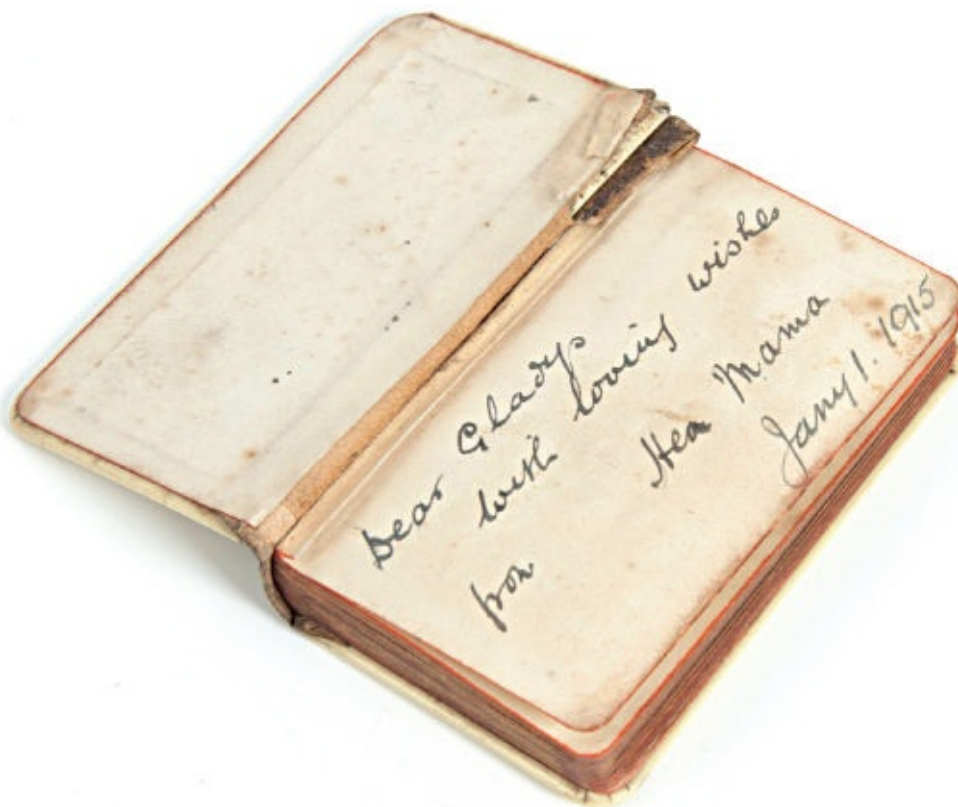 Dear Gladys
with loving wishes
from Her Mama
Jany 1. 1915